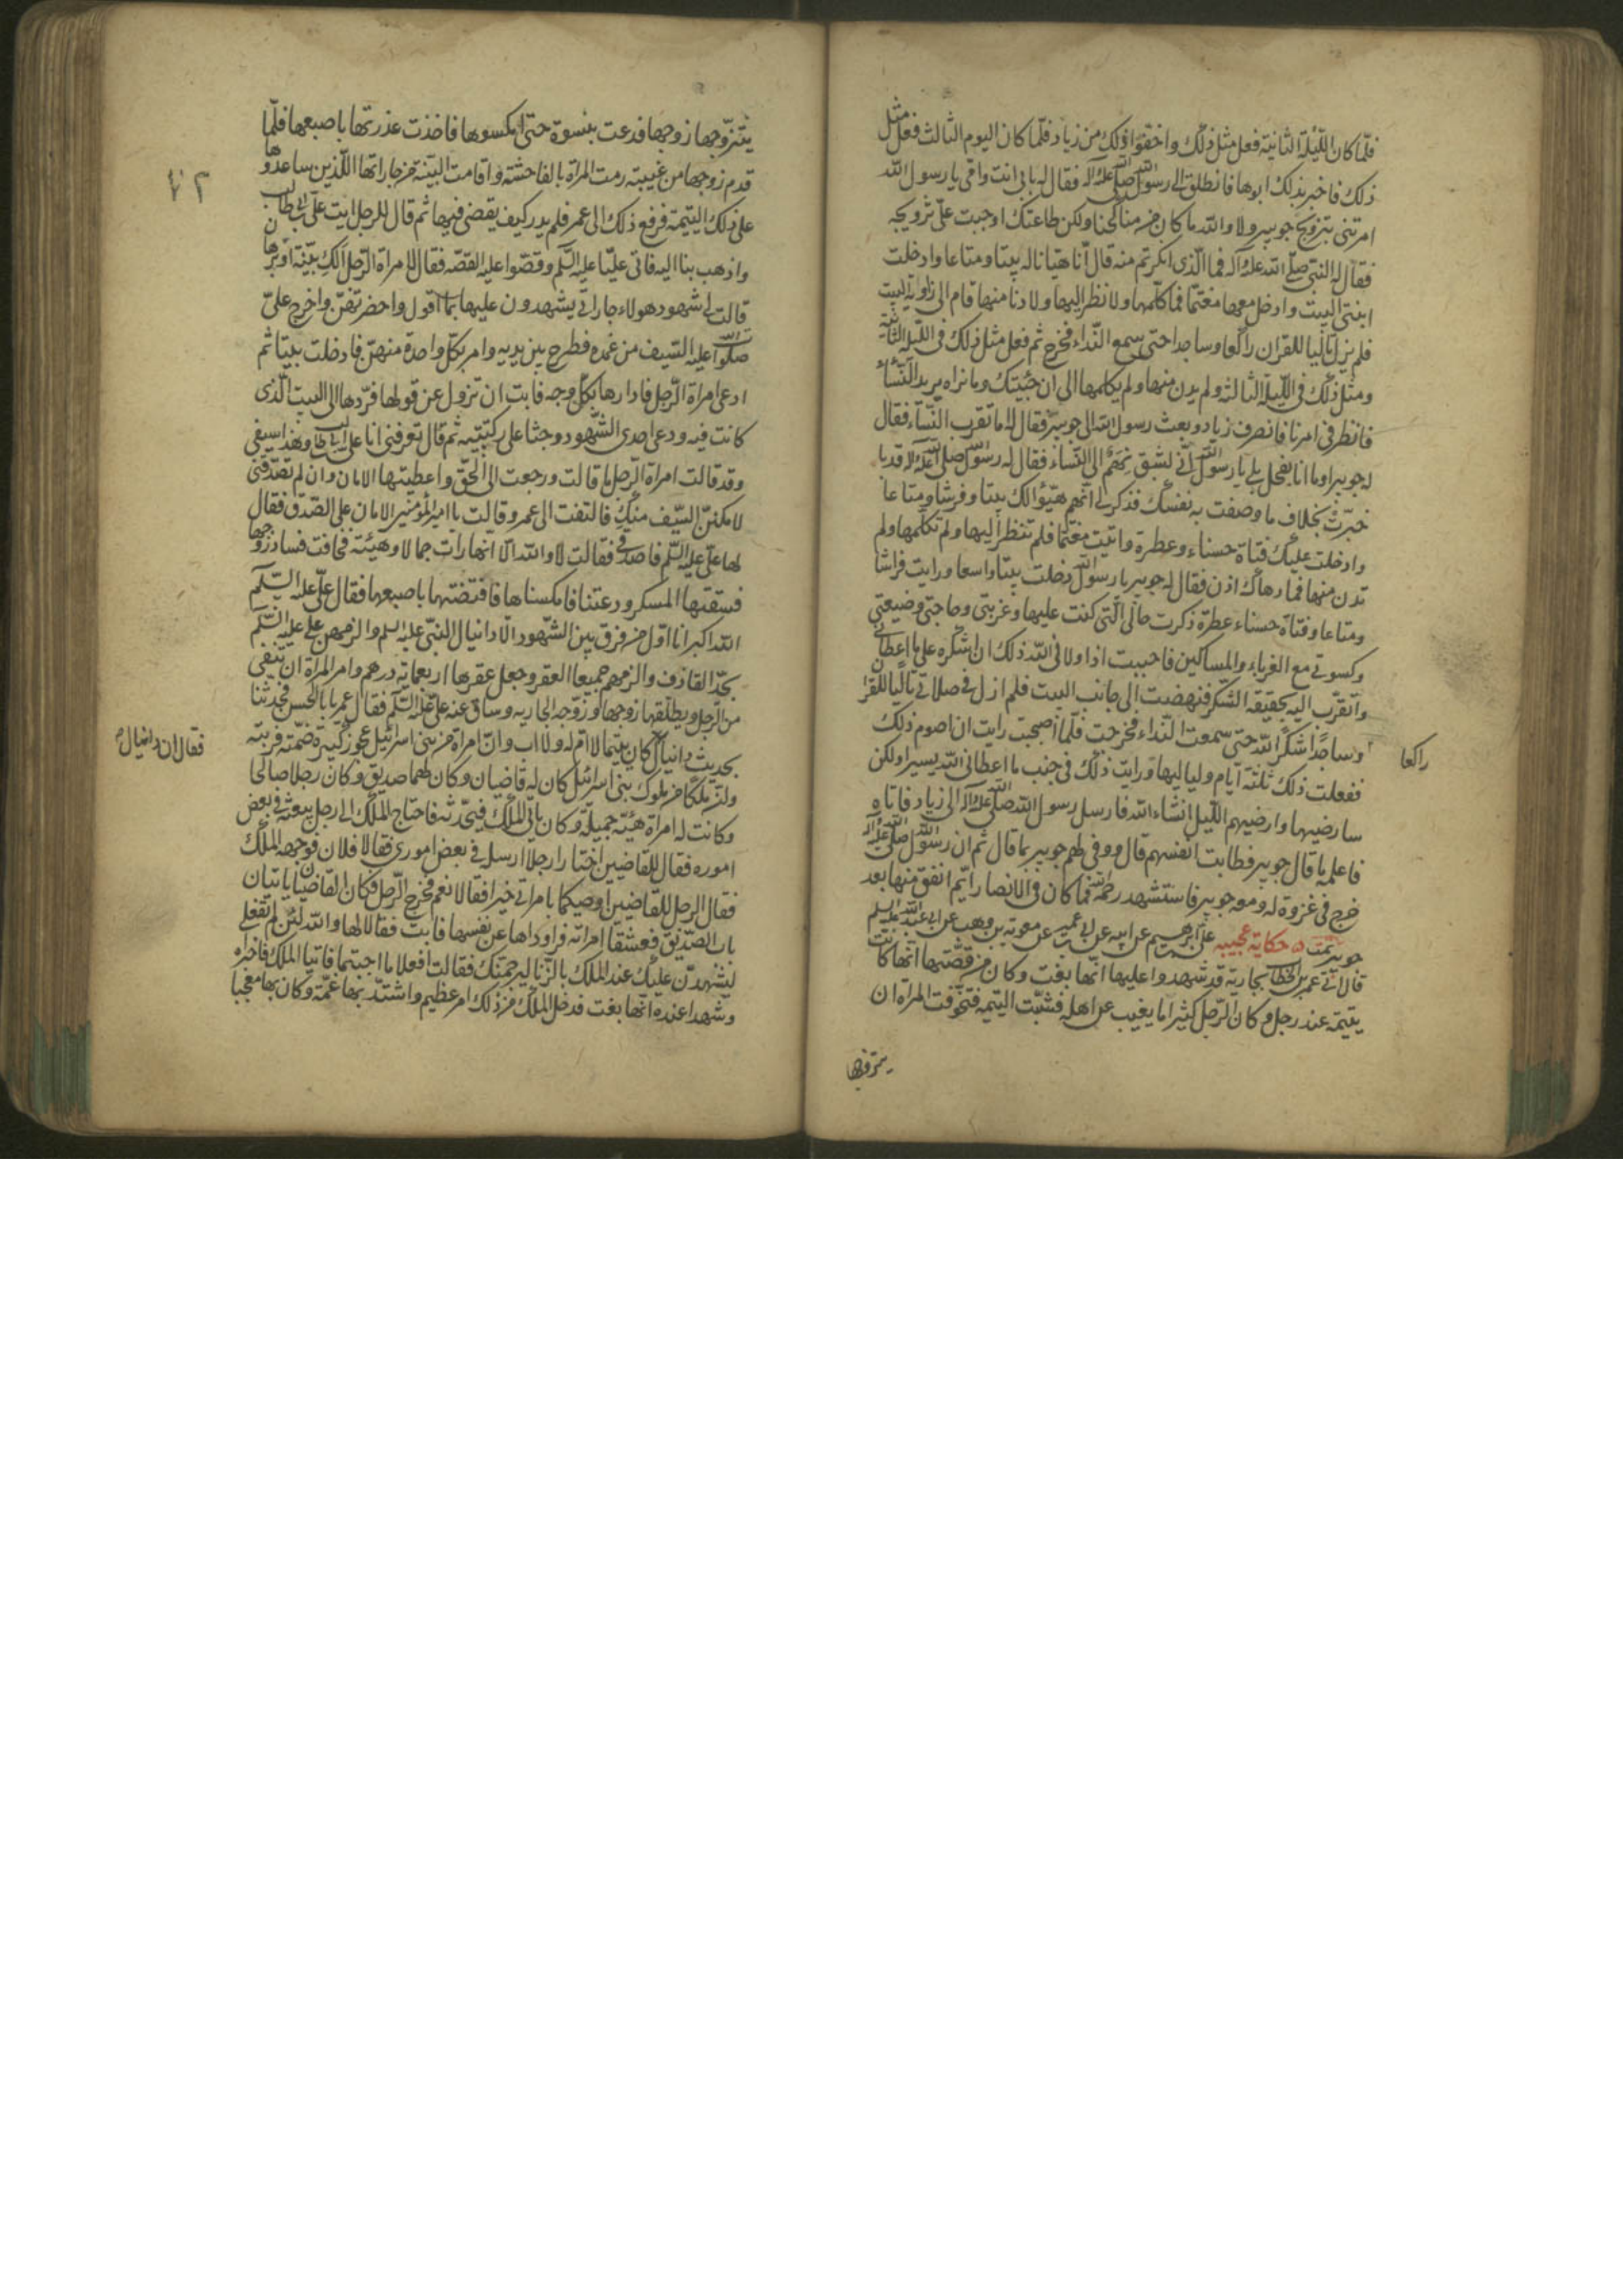 فلمّا كان اللّيلة الثانية فعل مثل ذلك واخفوا ذلك من زياد فلمّا كان اليوم الثالث فعل مثل
ذلك فاخبر بذلك ابوها فانطلق الى رسول الله صلى الله عليه وآله فقال له بابى انت وامّى يا رسول الله
امرتنى بتزويج جويبر ولا والله ما كان من مناكحنا ولكن طاعتك اوجبت علىّ تزويجه
فقال له النبى صلّى الله عليه وآله فما الّذى انكرتم منه قال انّا هيّانا له بيتا ومتاعا وادخلت
ابنتى البيت وادخل معها مغتمّا فما كلّمها ولا نظر اليها ولا دنا منها قام الى زاوية البيت
فلم يزل تاليا للقران راكعا وساجدا حتى سمع النّداء فخرج ثم فعل مثل ذلك فى اللّيلة الثانية
ومثل ذلك فى اللّيلة الثالثة ولم يدن منها ولم يكلمها الى ان جئتك وما نراه يريد النّساء
فانظر فى امرنا فانصرف زياد وبعث رسول الله الى جويبر فقال له اما تقرب النّساء فقال
له جويبر اوما انا بفحل بلى يا رسول الله انّى لشبق نهم الى النّساء فقال له رسول الله صلى الله عليه وآله قد
خبّرت بخلاف ما وصفت به نفسك فذكر لى انّهم هيّؤا لك بيتا وفرشا ومتاعا
وادخلت عليك فتاة حسناء وعطرة واتيت مغتمّا فلم تنظر اليها ولم تكلّمها ولم
تدن منها فما دهاك اذن فقال له جويبر يا رسول الله دخلت بيتا واسعا ورايت فراشا
ومتاعا وفتاة حسناء عطرة ذكرت حالى الّتى كنت عليها وغربتى وحاجتى وضيعتى
وكسوتى مع الغرباء والمساكين فاحببت اذا ولانى الله ذلك ان اشكره على ما اعطانى
واتقرّب اليه بحقيقة الشكر فنهضت الى جانب البيت فلم ازل فى صلاتى تاليا للقران
وساجدا اشكر الله حتى سمعت النّداء فخرجت فلمّا اصبحت رايت ان اصوم ذلك
راكعا
ففعلت ذلك ثلثة ايّام ولياليها ورايت ذلك فى جنب ما اعطانى الله يسيرا ولكن
سارضيها وارضيهم اللّيل انشاء الله فارسل رسول الله صلى الله عليه وآله الى زياد فاتاه
فاعلمه ما قال جويبر فطابت انفسهم قال ووفى لهم جويبر بما قال ثم ان رسول الله صلى الله عليه وآله
خرج فى غزوة له ومعه جويبر فاستشهد رحمه الله فما كان فى الانصار ايّم انفق منها بعد
جويبر تمت حكاية عجيبة على بن ابرهيم عن ابيه عن ابن ابى عمير عن معوية بن وهب عن ابى عبد الله عليه السلم
قال اتى عمر بن الخطاب بجارية قد شهدوا عليها انّها بغت وكان من قصّتها انّها كانت
يتيمة عند رجل وكان الرّجل كثيرا ما يغيب عن اهله فشبّت اليتيمة فتخوّفت المراة ان
يتزوّجها
يتزوّجها زوجها فدعت بنسوة حتى امسكوها فاخذت عذرتها باصبعها فلمّا
قدم زوجها من غيبته رمت المراة بالفاحشة واقامت البيّنة من جاراتها اللّذين ساعدوها
٧٢
على ذلك اليتيمة فرفع ذلك الى عمر فلم يدر كيف يقضى فيها ثم قال للرجل ايت على بن ابى طالب
واذهب بنا اليه فاتى عليّا عليه السّلم وقصّوا عليه القصّة فقال لامراة الرّجل الك بيّنة او برهان
قالت لى شهود هولاء جاراتى يشهدون عليها بما اقول واحضرتهنّ واخرج علىّ
صلوات الله عليه السّيف من غمده فطرح بين يديه وامر بكلّ واحدة منهنّ فادخلت بيتا ثم
ادعى امراة الرّجل فادارها بكلّ وجه فابت ان تزول عن قولها فردّها الى البيت الّذى
كانت فيه ودعى احدى الشّهود وجثا على ركبتيه ثم قال تعرفنى انا على بن ابى طالب وهذا سيفى
وقد قالت امراة الرّجل ما قالت ورجعت الى الحقّ واعطيتها الامان وان لم تصدّقنى
لامكننّ السّيف منك فالتفت الى عمر وقالت يا امير المؤمنين الامان على الصّدق فقال
لها علىّ عليه السّلم فاصدقى فقالت لا والله الّا انّها رات جمالا وهيئة فخافت فساد زوجها
فسقتها المسكر ودعتنا فامسكناها فافتضّتها باصبعها فقال علىّ عليه السّلم
الله اكبر انا اوّل من فرق بين الشّهود الّا دانيال النبىّ عليه السلم والزمهنّ على عليه السّلم
بحدّ القاذف والزمهم جميعا العقر وجعل عقرها اربعماية درهم وامر المراة ان تنفى
من الرّجل ويطلّقها زوجها وزوّجه الجارية وساق عنه علىّ عليه السّلم فقال عمر يا ابا الحسن فحدّثنا
بحديث دانيال كان يتيما لا امّ له ولا اب وانّ امراة من بنى اسرائيل عجوز كبيرة ضمّته فربّته
فقال ان دانيال
وانّ ملكا من ملوك بنى اسرائيل كان له قاضيان وكان لهما صديق وكان رجلا صالحا
وكانت له امراة هيّة جميلة وكان ياتى الملك فيحدّثه فاحتاج الملك الى رجل يبعثه فى بعض
اموره فقال للقاضيين اختارا رجلا ارسل فى بعض امورى فقالا فلان فوجهه الملك
فقال الرجل للقاضيين اوصيكما بامراتى خيرا فقالا نعم فخرج الرّجل فكان القاضيان ياتيان
باب الصّديق فعشقا امراته فراوداها عن نفسها فابت فقالا لها والله لئن لم تفعلى
لنشهدنّ عليك عند الملك بالزّنا ليرجمنّك فقالت افعلا ما احببتما فاتيا الملك فاخبراه
وشهدا عنده انّها بغت فدخل الملك من ذلك امر عظيم واشتدّ بها غمّه وكان بها معجبا